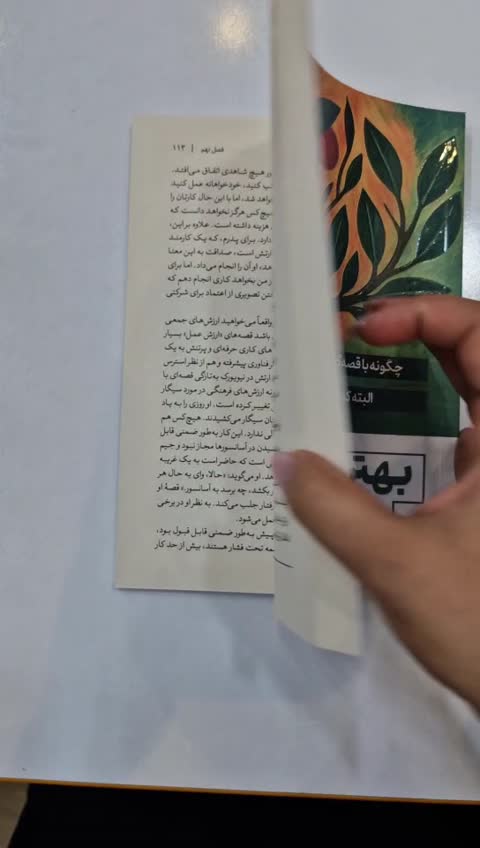 فصل نهم | ۱۱۳
هیچ شاهدی اتفاق می‌افتد،
کنید، خودخواهانه عمل کنید
شد، اما با این حال کارتان را
هیچ‌کس هرگز نخواهد دانست که
هزینه داشته است. علاوه بر این،
دارد. برای پدرم، که یک کارمند
ارتش است، صداقت به این معنا
او آن را انجام می‌داد. اما برای
من بخواهد کاری انجام دهم که
تصویری از اعتماد برای شرکتی
واقعاً می‌خواهید ارزش‌های جمعی
باشد قصه‌های «ارزش عمل» بسیار
های کاری حرفه‌ای و پرتنش به یک
فناوری پیشرفته و هم از نظر استرس
ارتش در نیویورک به‌تازگی قصه‌ای با
ارزش‌های فرهنگی در مورد سیگار
تغییر کرده است. او روزی را به یاد
سیگار می‌کشیدند. هیچ‌کس هم
ندارد. این کار به‌طور ضمنی قابل
در آسانسورها مجاز نبود و جیم
است که حاضر است به یک غریبه
او می‌گوید: «حالا، وای به حال هر
بکشد، چه برسد به آسانسور.» قصهٔ او
جلب می‌کند. به نظر او در برخی
می‌شود.
پیش به‌طور ضمنی قابل قبول بود،
تحت فشار هستند، بیش از حد کار
چگونه با قصه
البته